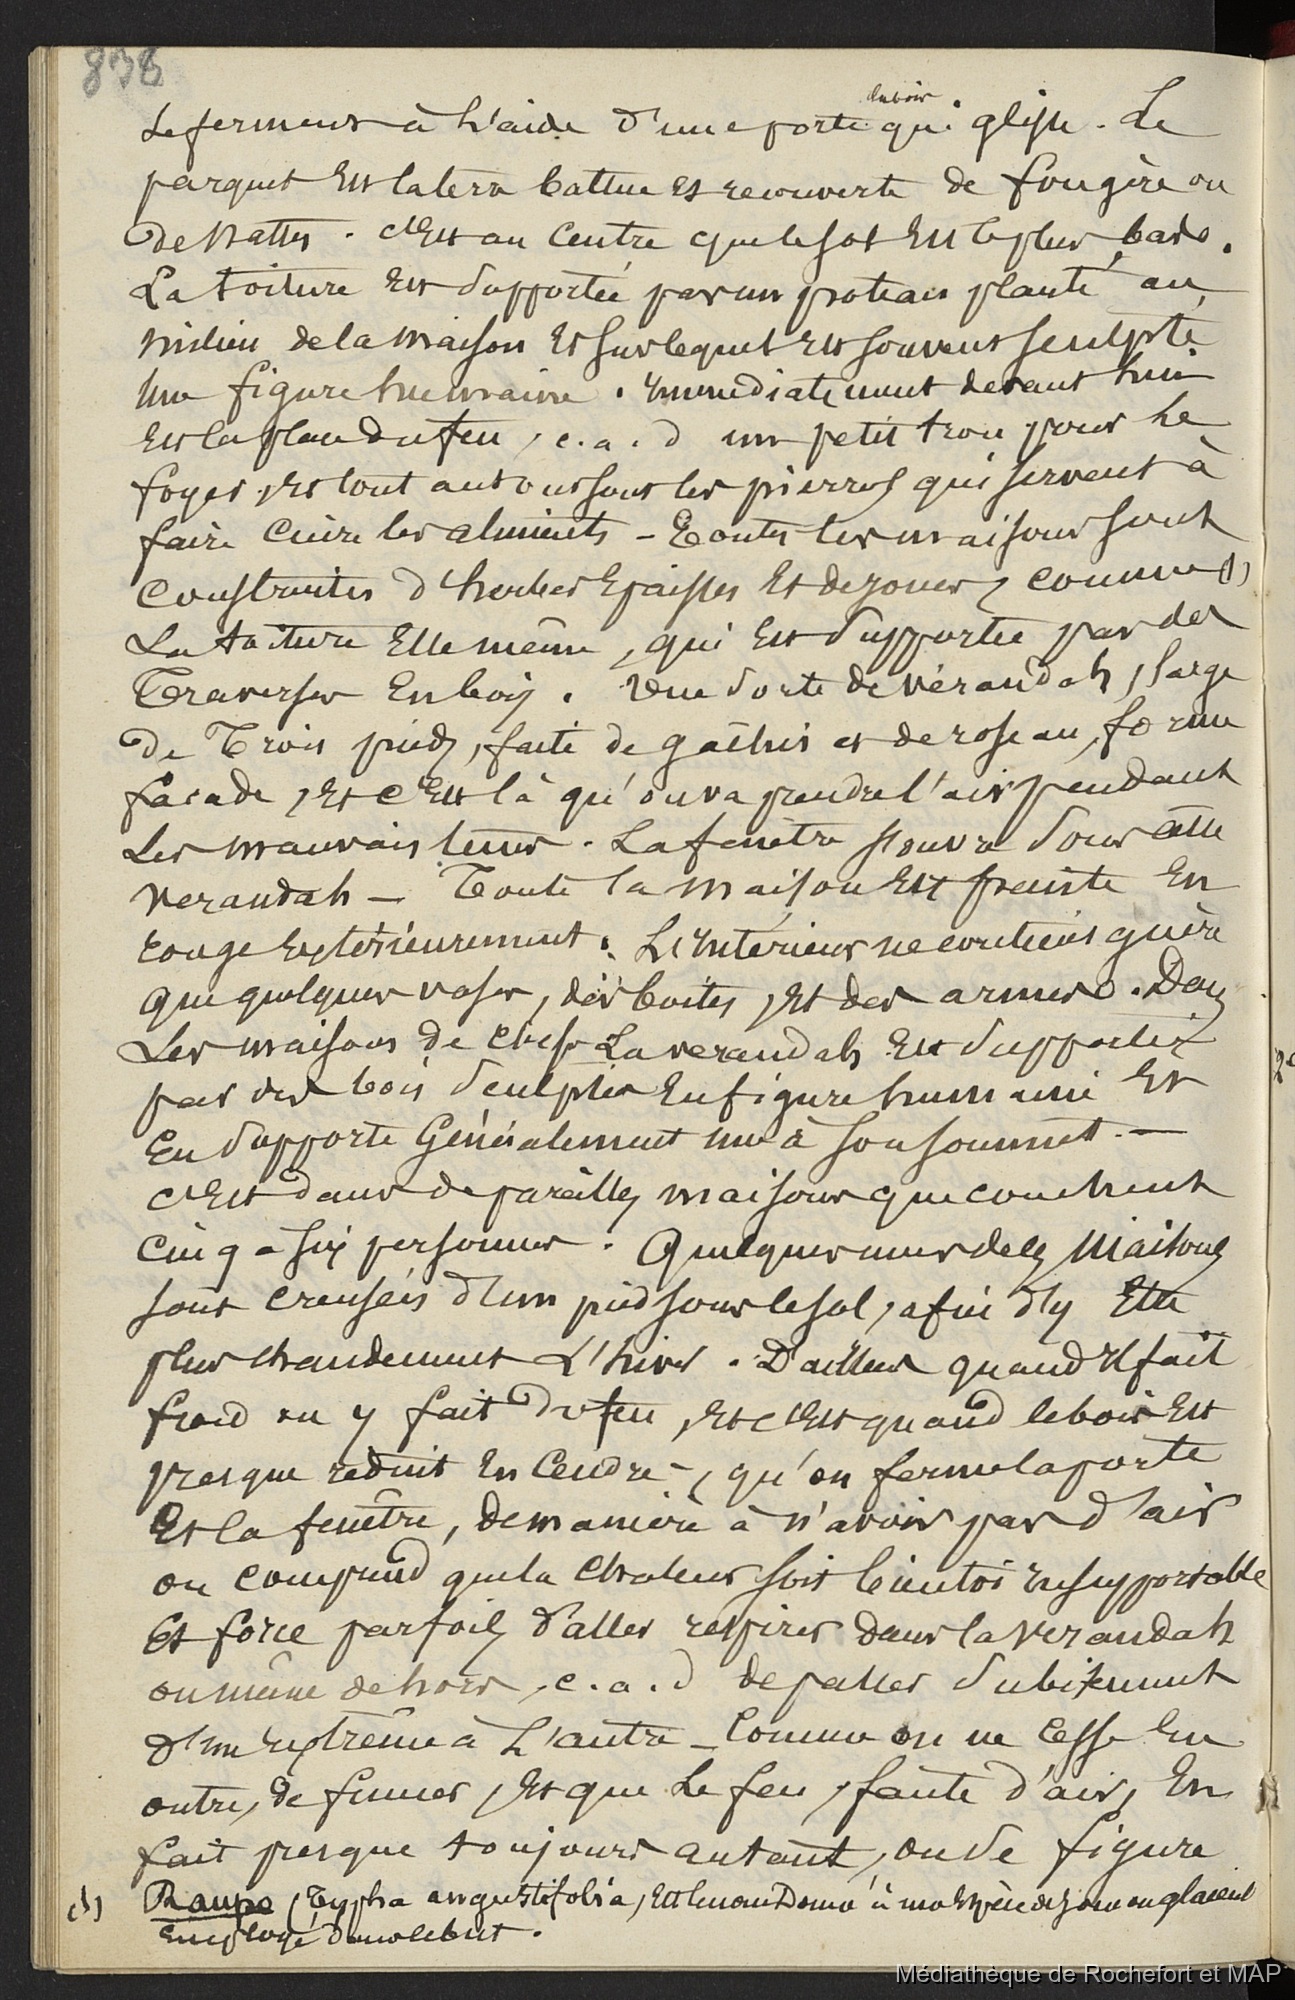 838
de bois
Se ferment à l'aide d'une porte qui glisse. Le
parquet Est la terre battue et recouverte de fougère ou
de Nattes. C'Est au Centre que le sol Est le plus bas.
La toiture Est supportée par un poteau planté au
milieu de la maison Et sur lequel Est souvent sculpté
une figure humaine. Immediatement devant lui
Est la place du feu, c.a.d un petit trou pour le
foyer, Et tout autour sont les pierres qui servent à
faire Cuire les aliments - Toutes les maisons sont
Construites d'herbes Epaisses Et de joncs, comme (1)
La toiture Elle même, qui Est supportée par des
Traverses En bois. Une sorte de vérandah, large
de Trois pieds, faite de gachis et de roseau, forme
facade, Et c'Est là qu'on va prendre l'air pendant
Les mauvais tems. La fenêtre s'ouvre sous cette
verandah - Toute la maison Est peinte En
rouge Extérieurement. L'Intérieur ne contient guère
que quelques vases, des boites, Et des armes. Dans
Les maisons de chefs La verandah Est supportée
par des bois sculptés En figure humaine Et
En supporte Généralement une à son sommet. -
C'Est dans de pareilles maisons que couchent
Cinq a six personnes. Quelques unes de ces Maisons
sont creusées d'un pied sous le sol, afin d'y Etre
plus chaudement L'hiver. D'ailleurs quand Il fait
froid on y fait du feu, Et c'Est quand le bois Est
presque réduit En Cendre -, qu'on ferme la porte
Et la fenêtre, de manière à n'avoir pas d'air
on comprend que la Chaleur soit bientôt Insupportable
Et force parfois d'aller respirer dans la Verandah
ou même dehors, c.a.d de passer subitement
d'un Extrême à L'autre - Comme on ne Cesse En
outre, de fumer, Et que Le feu, faute d'air, En
fait presque toujours autant, on se figure
(1) Raupo, (Typha angustifolia, Est le nom Donné à une Espèce de jonc ou glaieul
Employé dans ce but.
Médiathèque de Rochefort et MAP